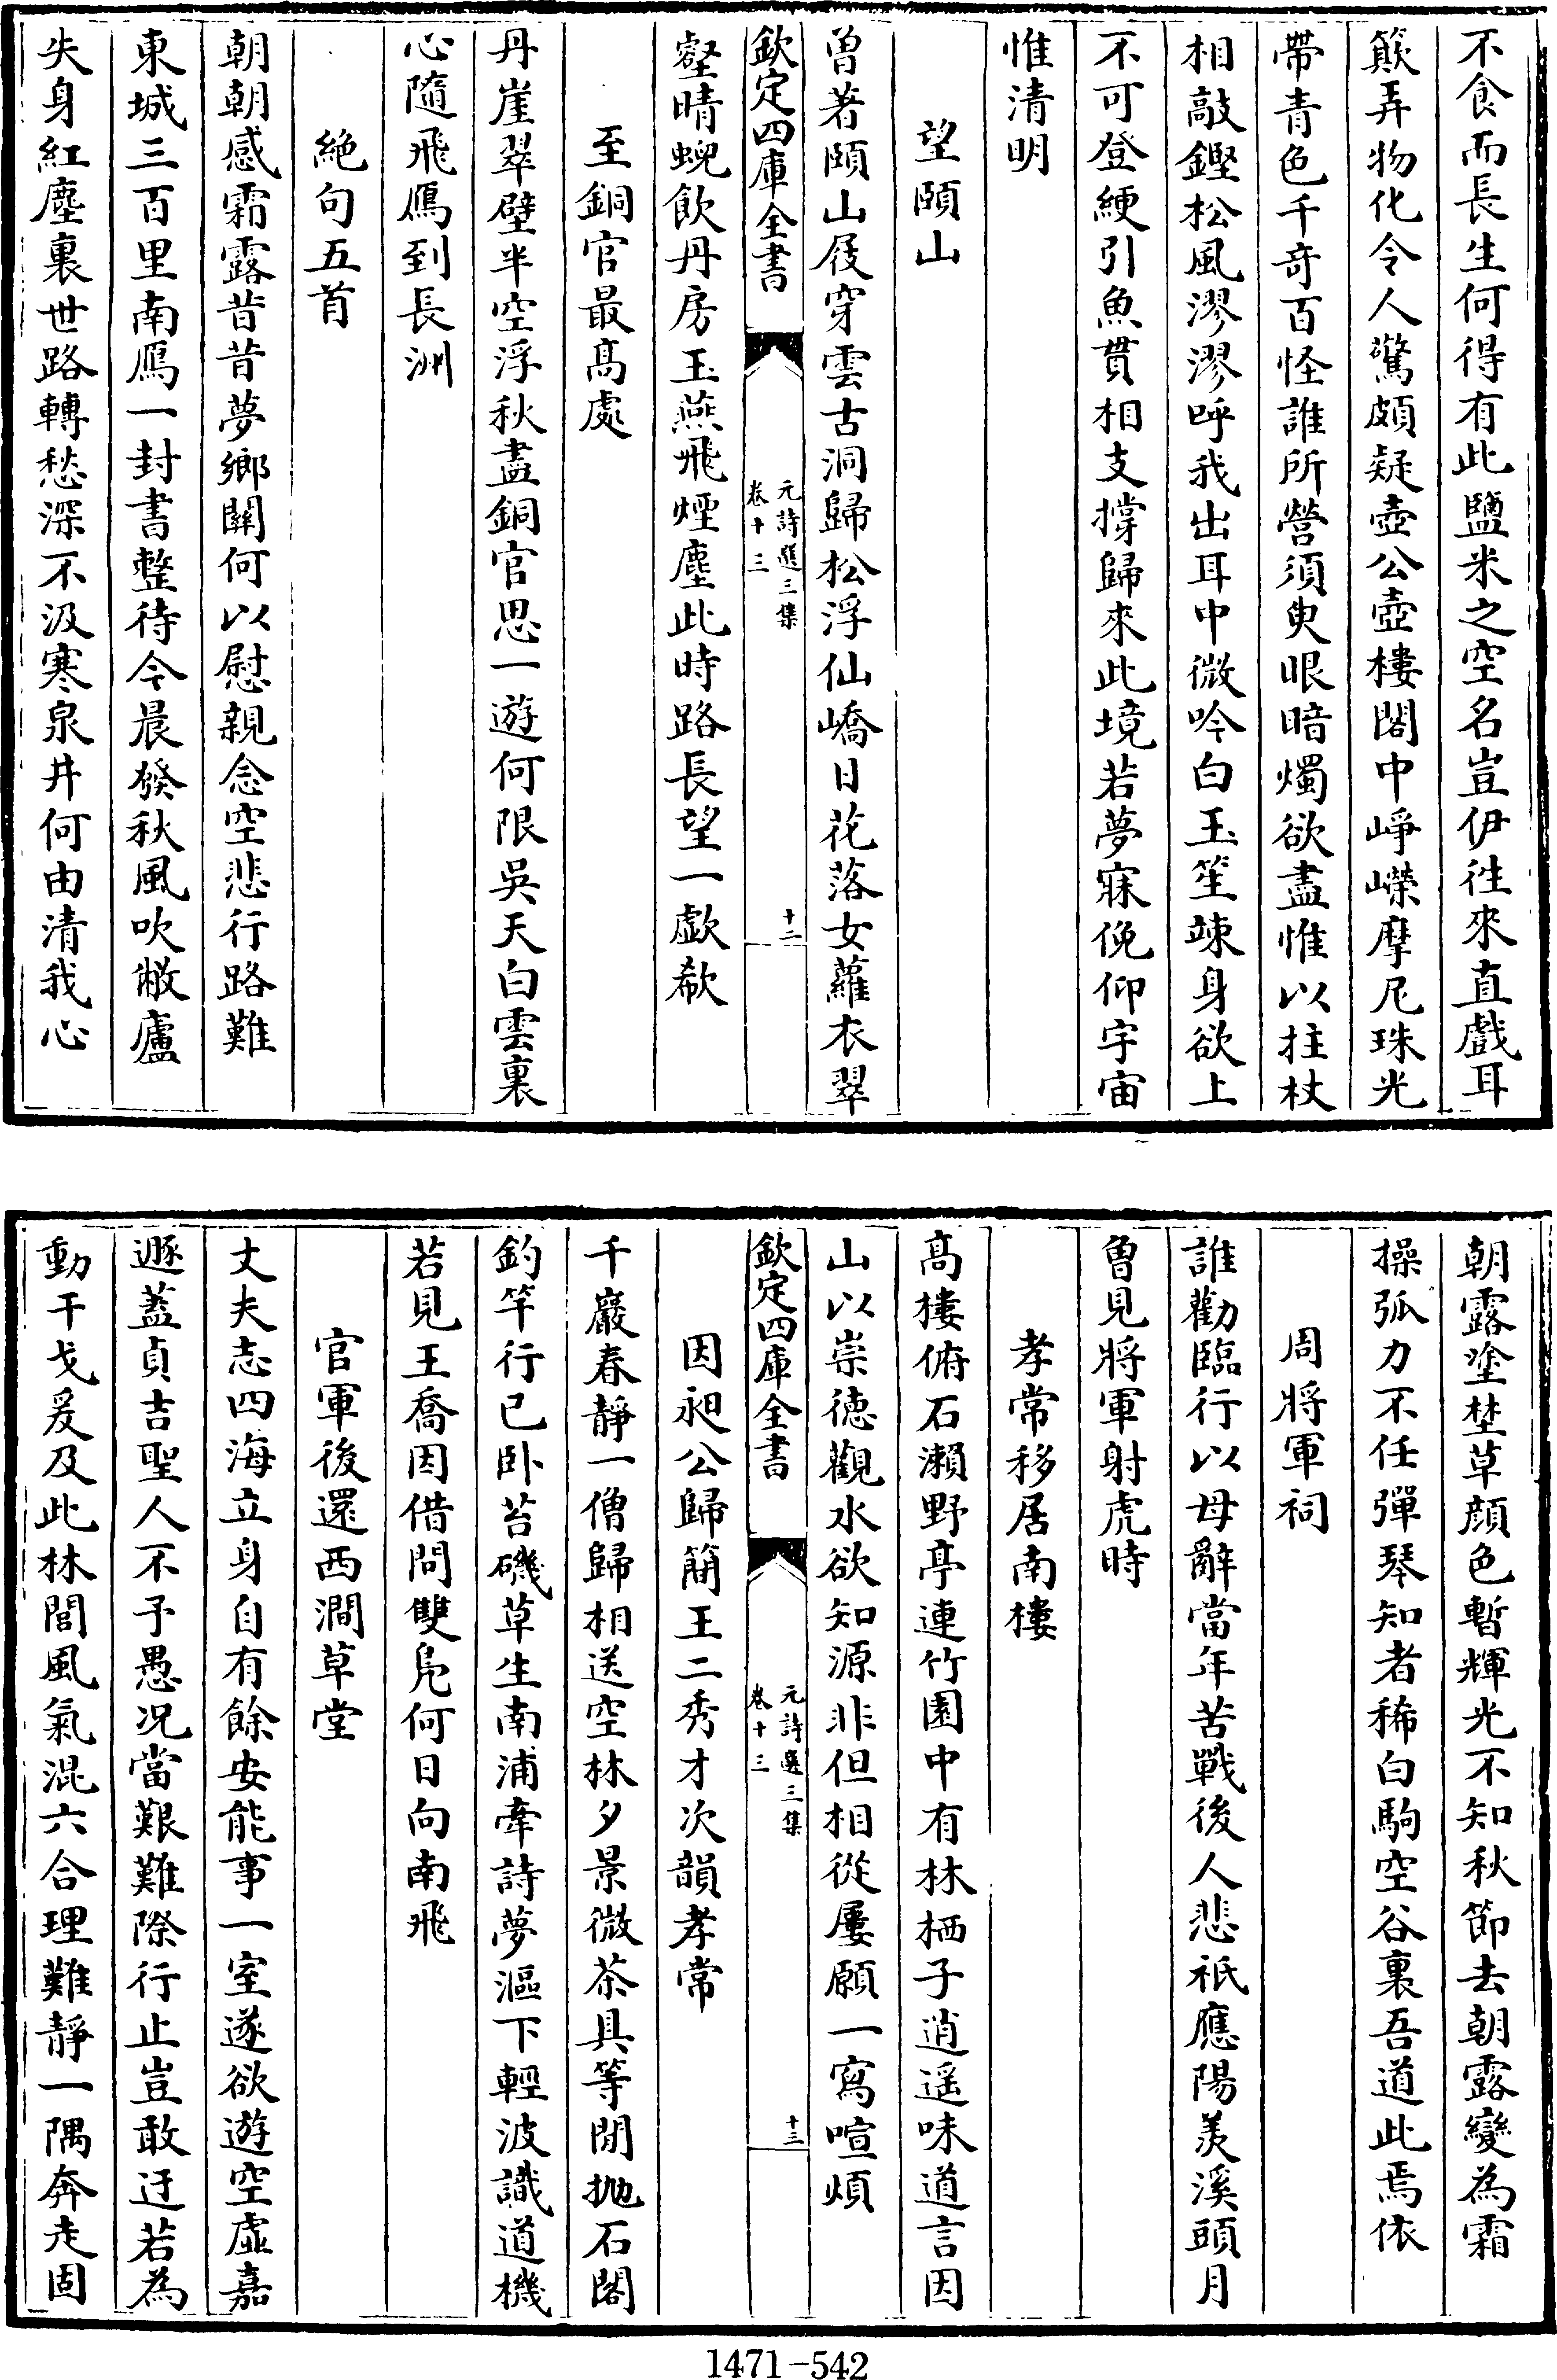 不食而長生何得有此鹽米之空名豈伊徃來直戲耳
簸弄物化令人驚頗疑壺公壺樓閣中崢嶸摩尼珠光
帶青色千竒百怪誰所營須臾眼暗燭欲盡惟以拄杖
相敲鏗松風漻漻呼我出耳中微吟白玉笙竦身欲上
不可登綆引魚貫相支撐歸來此境若夢寐俛仰宇宙
惟清明
望頤山
曽著頤山屐穿雲古洞歸松浮仙嶠日花落女蘿衣翠
欽定四庫全書
元詩選三集
卷十三
十二
壑晴蜺飲丹房玉燕飛煙塵此時路長望一歔欷
至銅官最髙處
丹崖翠壁半空浮秋盡銅官思一遊何限吳天白雲裏
心隨飛鴈到長洲
絶句五首
朝朝感霜露昔昔夢鄉闗何以慰親念空悲行路難
東城三百里南鴈一封書整待今晨發秋風吹敝廬
失身紅塵裏世路轉愁深不汲寒泉井何由清我心
朝露塗埜草顔色暫輝光不知秋節去朝露變為霜
操弧力不任彈琴知者稀白駒空谷裏吾道此焉依
周將軍祠
誰勸臨行以母辭當年苦戰後人悲祇應陽羨溪頭月
曽見將軍射虎時
孝常移居南樓
髙樓俯石瀨野亭連竹園中有林栖子逍遥味道言因
山以崇德觀水欲知源非但相從屢願一寫喧煩
欽定四庫全書
元詩選三集
卷十三
十三
因昶公歸簡王二秀才次韻孝常
千巖春靜一僧歸相送空林夕景微茶具等閒拋石閣
釣竿行已卧苔磯草生南浦牽詩夢漚下輕波識道機
若見王喬因借問雙鳬何日向南飛
官軍後還西澗草堂
丈夫志四海立身自有餘安能事一室遂欲遊空虛嘉
遯蓋貞吉聖人不予愚况當艱難際行止豈敢迂若為
動干戈爰及此林閭風氣混六合理難靜一隅奔走固
1471-542